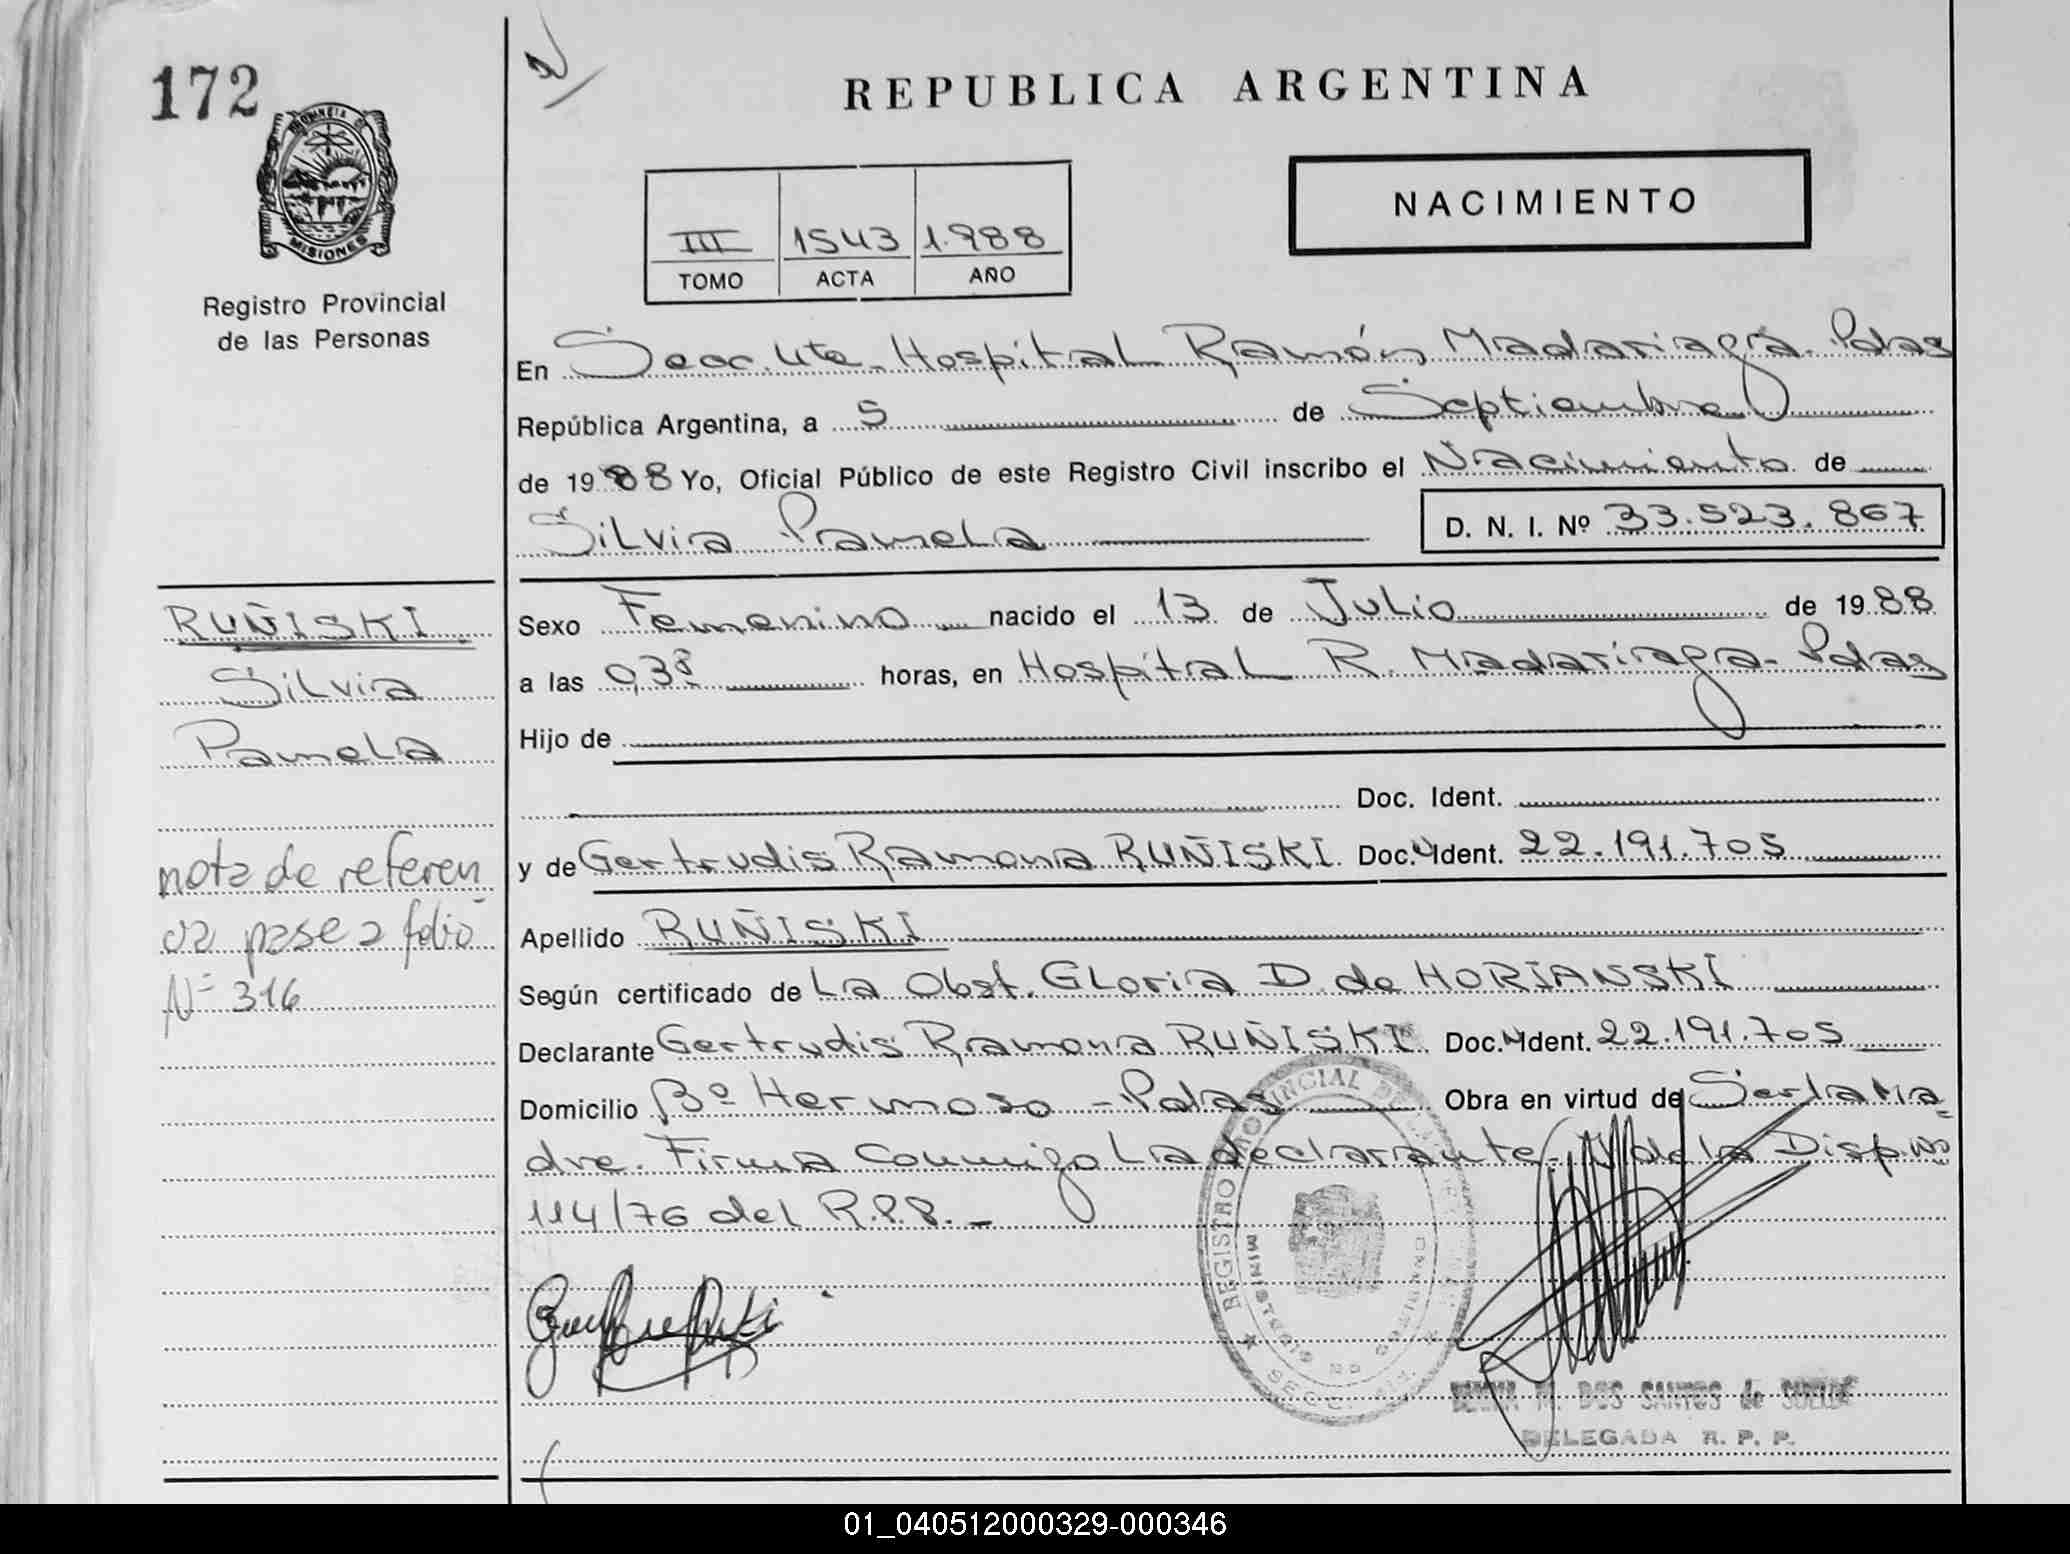 172
PROVINCIA DE
MISIONES
Registro Provincial
de las Personas
REPUBLICA ARGENTINA
NACIMIENTO
III 1543 1.988
TOMO ACTA AÑO
En Secc. 4ta. Hospital Ramón Madariaga. Pdas
República Argentina, a 5 de Septiembre
de 1988 Yo, Oficial Público de este Registro Civil inscribo el Nacimiento de
Silvia Pamela
D. N. I. Nº 33.523.867
RUÑISKI
Silvia
Pamela
nota de referen
cia pase a folio
Nº 316
Sexo Femenino nacido el 13 de Julio de 1988
a las 0,3 horas, en Hospital R. Madariaga - Pdas
Hijo de
Doc. Ident.
y de Gertrudis Ramona RUÑISKI Doc. Ident. 22.191.705
Apellido RUÑISKI
Según certificado de La Obst. Gloria D. de HORIANSKI
Declarante Gertrudis Ramona RUÑISKI Doc. Ident. 22.191.705
Domicilio Bº Hermoso - Pdas Obra en virtud de Ser la Ma-
dre. Firma Conmigo La declarante. de la Disp. Nº
114/76 del R.P.P. -
REGISTRO PROVINCIAL DE
MINISTERIO DE GOBIERNO
SECC.
M. DOS SANTOS de
DELEGADA R. P. P.
01_040512000329-000346